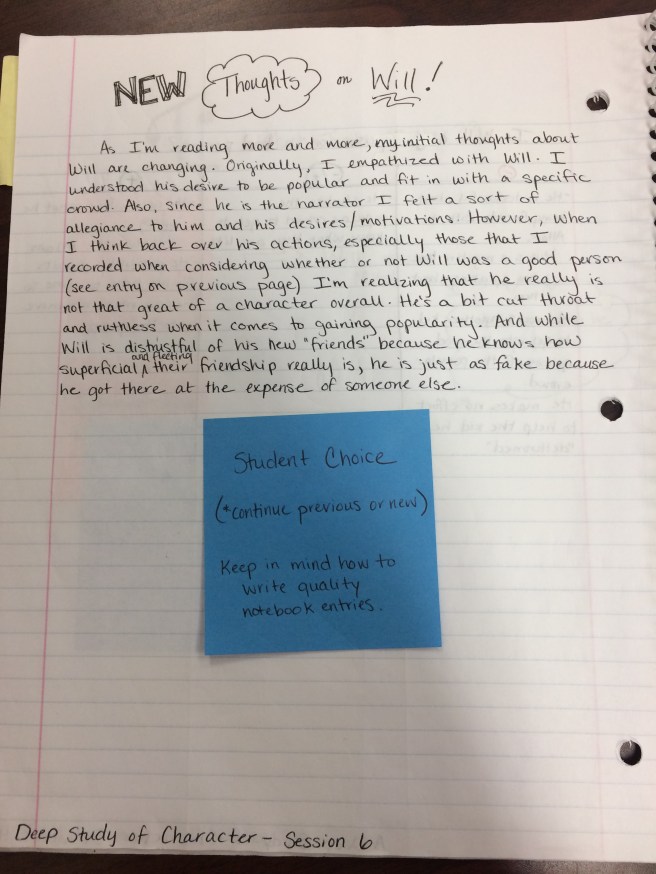 NEW Thoughts on Will!
As I'm reading more and more, my initial thoughts about
Will are changing. Originally, I empathized with Will. I
understood his desire to be popular and fit in with a specific
crowd. Also, since he is the narrator I felt a sort of
allegiance to him and his desires/motivations. However, when
I think back over his actions, especially those that I
recorded when considering whether or not Will was a good person
(see entry on previous page) I'm realizing that he really is
not that great of a character overall. He's a bit cut throat
and ruthless when it comes to gaining popularity. And while
Will is distrustful of his new "friends" because he knows how
superficial and fleeting their friendship really is, he is just as fake because
he got there at the expense of someone else.
Student Choice
(*continue previous or new)
Keep in mind how to
write quality
notebook entries.
Deep Study of Character - Session 6